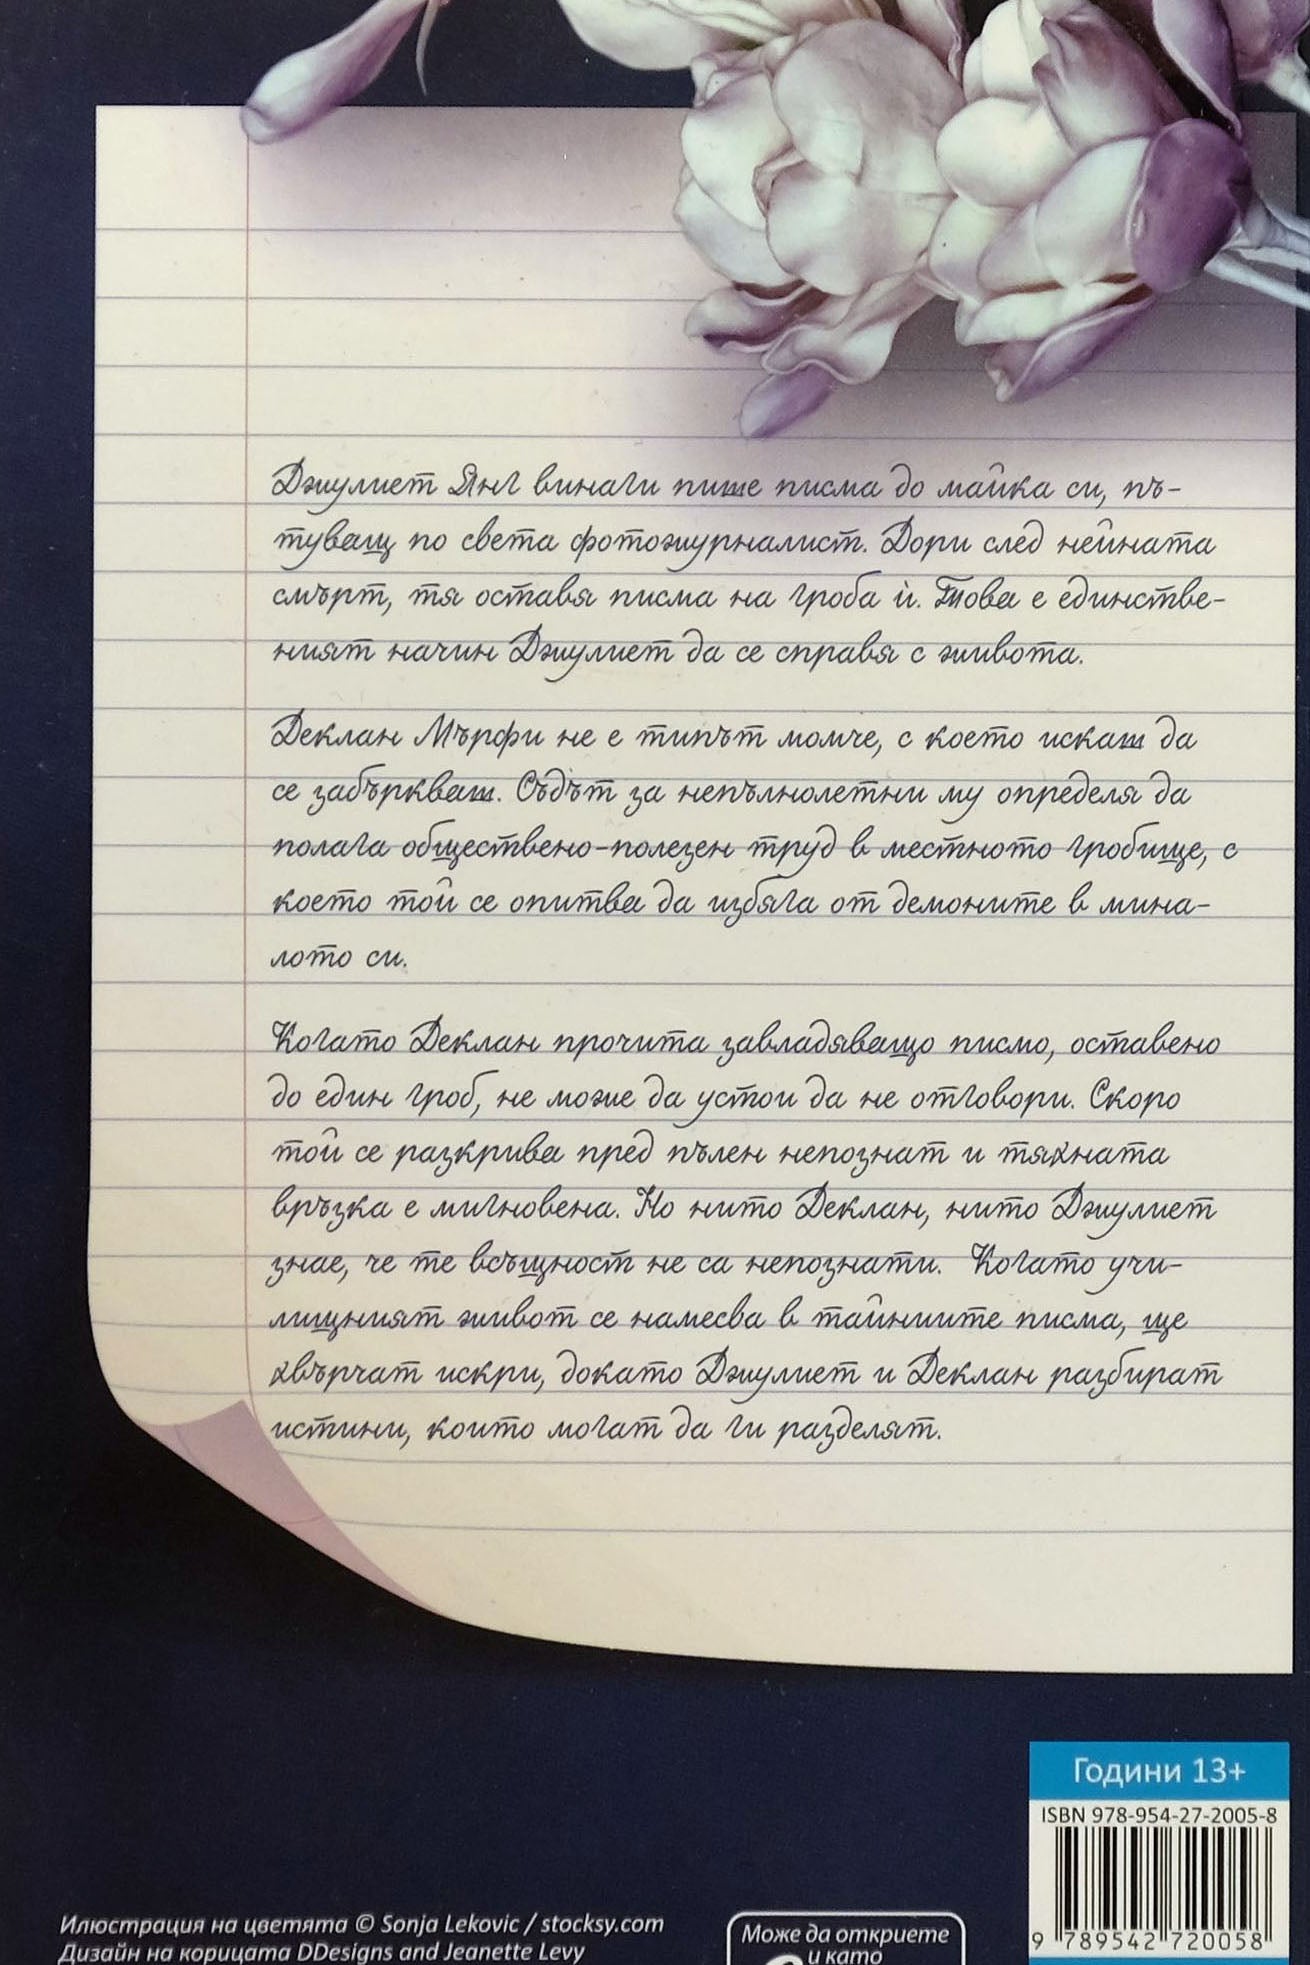 Джулиет Янг винаги пише писма до майка си, пъ-
туващ по света фотожурналист. Дори след нейната
смърт, тя оставя писма на гроба ѝ. Това е единстве-
ният начин Джулиет да се справя с живота.
Деклан Мърфи не е типът момче, с което искаш да
се забъркваш. Съдът за непълнолетни му определя да
полага обществено-полезен труд в местното гробище, с
което той се опитва да избяга от демоните в мина-
лото си.
Когато Деклан прочита завладяващо писмо, оставено
до един гроб, не може да устои да не отговори. Скоро
той се разкрива пред пълен непознат и тяхната
връзка е мигновена. Но нито Деклан, нито Джулиет
знае, че те всъщност не са непознати. Когато учи-
лищният живот се намесва в тайниите писма, ще
хвърчат искри, докато Джулиет и Деклан разбират
истини, които могат да ги разделят.
Години 13+
ISBN 978-954-27-2005-8
9 789542 720058
Илюстрация на цветята © Sonja Lekovic / stocksy.com
Дизайн на корицата DDesigns and Jeanette Levy
Може да откриете
и като